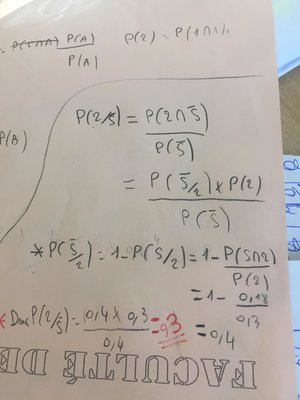 = P(C∩A) P(A) / P(A)
P(2) = P(1∩2).
P(B)
P(2/S̄) = P(2∩S̄) / P(S̄)
= P(S̄/2) × P(2) / P(S̄)
* P(S̄/2) = 1 - P(S/2) = 1 - P(S∩2) / P(2)
= 1 - 0,18 / 0,3
= 0,4
* Donc P(2/S̄) = 0,4 × 0,3 / 0,4 = 0,3
FACULTÉ DE